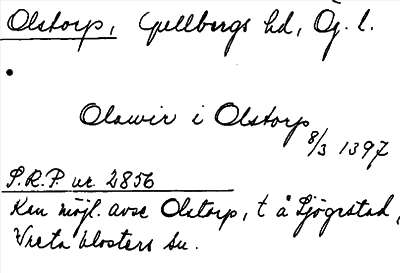 Olstorp, Gullbergs hd, Ög. l.
Olawir i Olstorp
8/3 1397
S.R.P. nr 2856
Kan möjl. avse Olstorp, t å Sjögestad,
Vreta klosters sn.